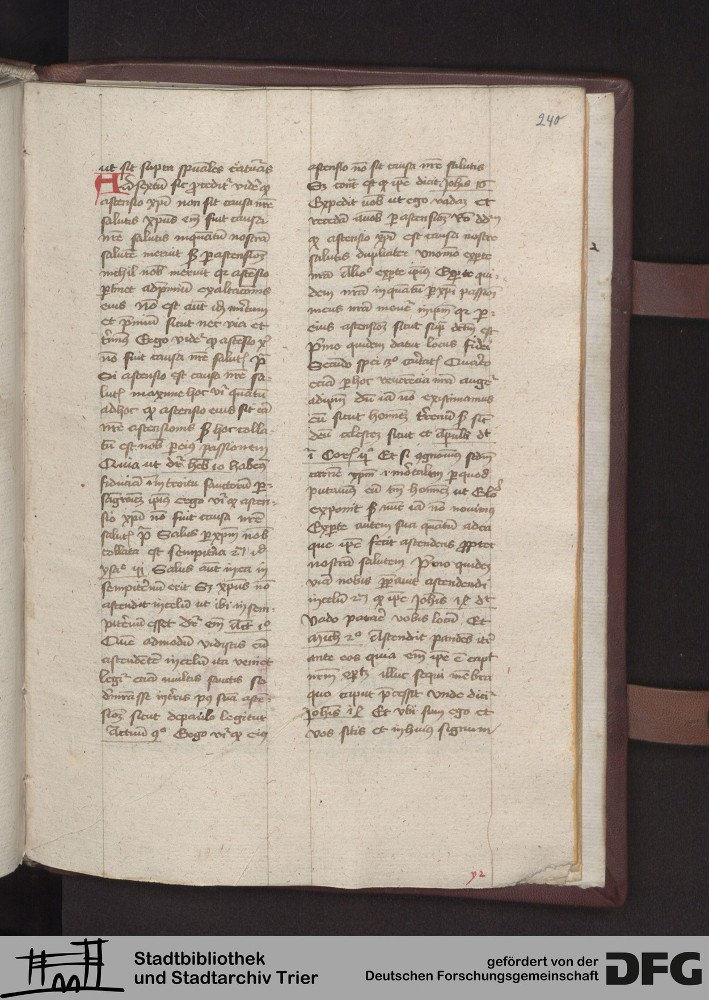 240
ut sit supra spuales creaturas
Ad sextum sic procedit vider q
ascensio xpi non sit causa nre
salutis xpus em fuit causa
nre salutis inquatu nostra
salute meruit s p ascensioz
nichil nob meruit qr ascesio
ptinet ad pmiu exaltacionis
eius No est aut idz meritum
et pmiu sicut nec via et
tmius Ergo vider q ascesio x
no fuit causa nre salut p
Si ascensio est causa nre sa-
lut maxime hoc vi quatu
ad hoc q ascensio eius sit ca
nre ascensionis s hoc colla-
tu est nob p eius passionem
Quia ut dr heb 10 habem
fiducia in introitu sanctoru p
sagwiez ipius ergo vi q ascen-
sio xpi no fuit causa nre
salut p Salus p xpm nob
collata est sempitna
ysa Salus aut mea in
sempiternu erit Sz xpus no
ascendit in celum ut ibi in sem-
piternu esset dr em Act 1o
Quemadmodu vidistis eu
ascendete in celum ita veniet
legi etia multis sanctis se
demonstrasse in tris p sua asce-
sioz sicut de paulo legitur
Actuu 9o Ergo vi q eius
ascensio no sit causa nre salutis
Sz cont est q ipe dicit Johis 16
Expedit vobis ut ego vadaz Et
recedā a vob p ascensioz Ro ddm
q ascensio xpi est causa nostre
salutis duplicter vno mo ex pte
nra Alio ex pte ipius Ex pte qui-
dem nra inquatu p xpi passion
mens nra mouet in ipm qr p
eius ascensioz sicut sup dctm est
Pmo quidem datur locus fidei
Secundo spei 3o caritati Quarto
etia p hoc reuerecia nra auget
ad ipm du ia no existimamus
eu sicut homiez terrenu s sic
deu celestez sicut et Apulus dt
2 Cor Et si cognouimus sedm
carne xpm i mortalem p quod
putauimus eu tm homiez ut glo
exponit s nuc ia no nouimus
Ex pte autem sua quatu ad ea
que ipe fecit ascendens propter
nostra salutem Pmo quidez
via nobis parauit ascendendi
in celu q ipe Johis 14 dt
Vado parare vobis locu Et
Mich 2o Ascendit pandes iter
ante eos quia em ipe e caput
nrm illuc sequi mebra
quo caput pcessit vnde dicit
Johis 14 Et vbi sum ego et
vos sitis et in huius signum
2
y2
Stadtbibliothek
und Stadtarchiv Trier
gefördert von der
Deutschen Forschungsgemeinschaft
DFG